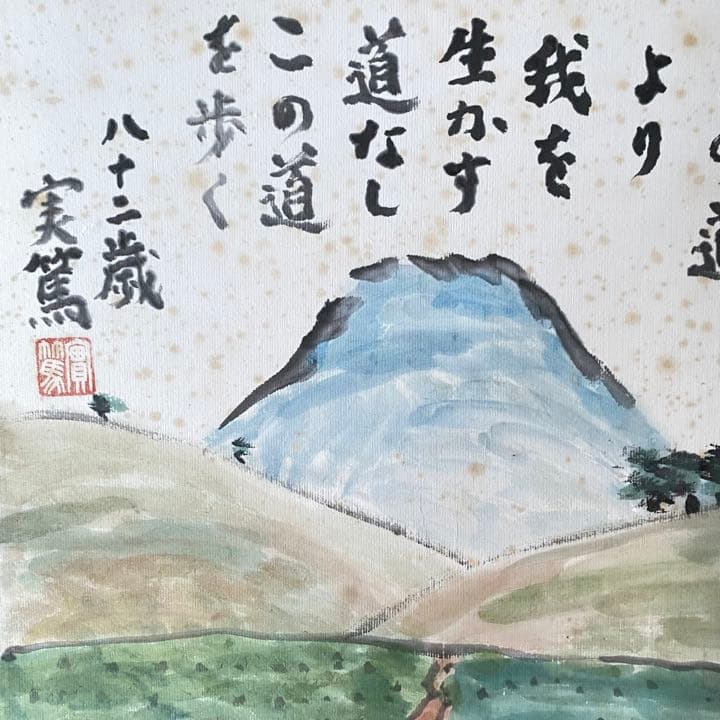 道
より
我を
生かす
道なし
この道
を歩く
八十二歳
実篤
實篤